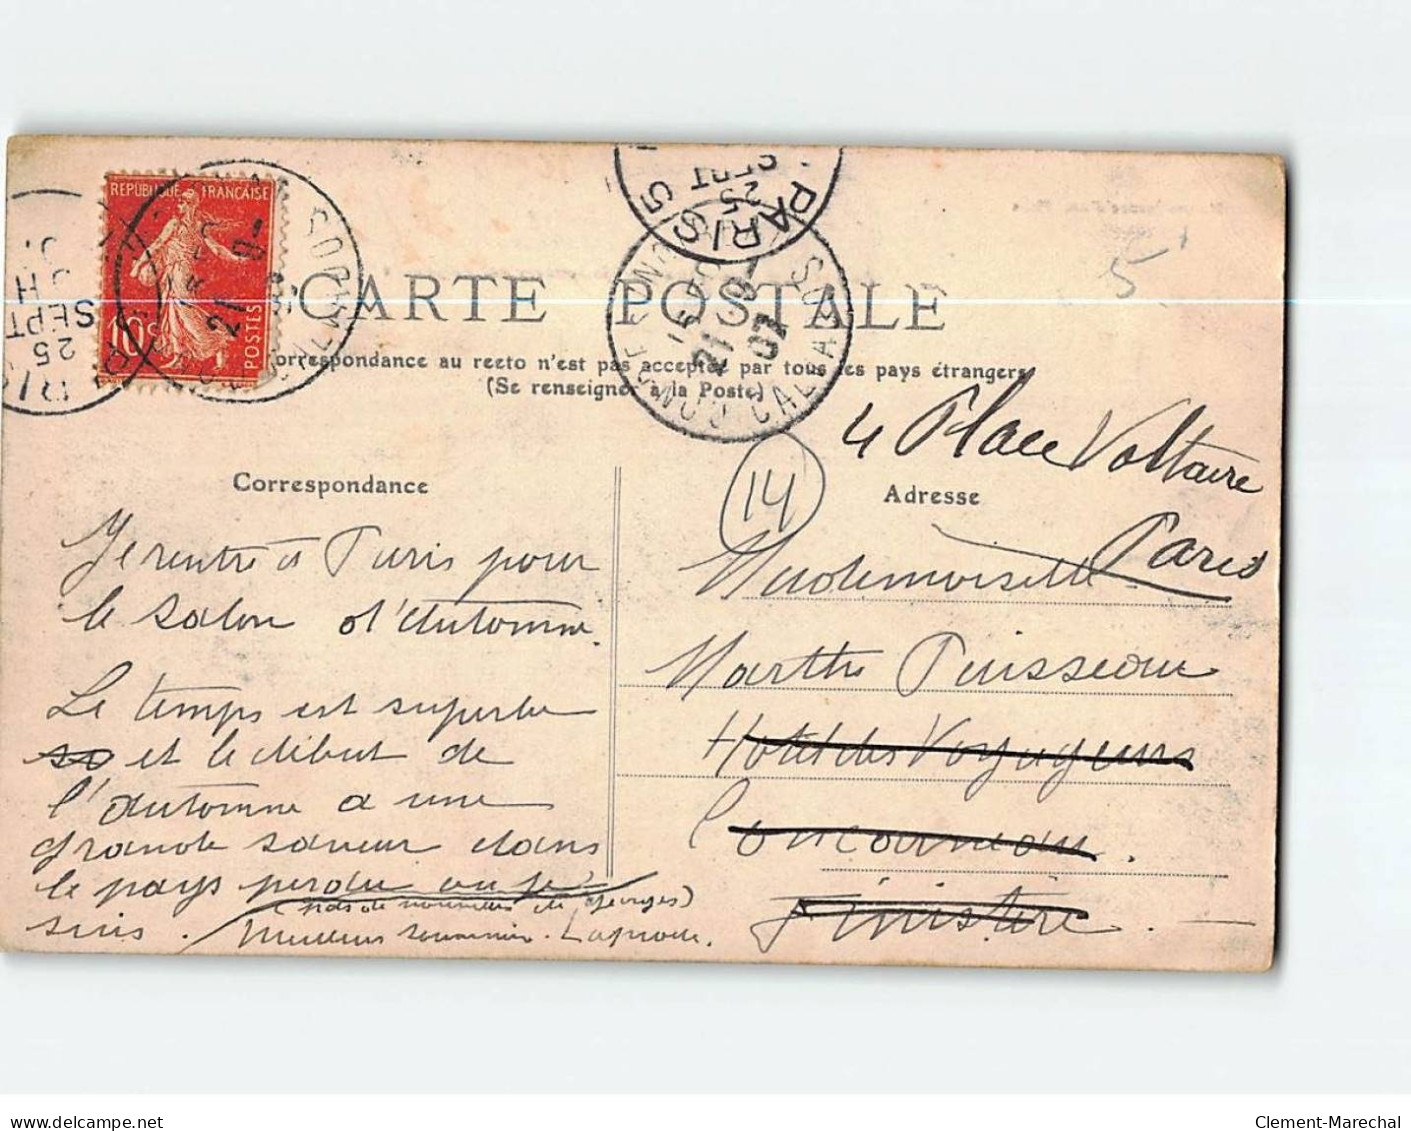 REPUBLIQUE FRANÇAISE
10c
POSTES
PARIS 5
25
SEPT
21
07
CALVADOS
CARTE POSTALE
correspondance au recto n'est pas acceptée par tous les pays étrangers
(Se renseigner à la Poste)
5
14
4 Place Voltaire
Paris
Correspondance
Adresse
Je rentre à Paris pour
le salon d'Automne.
Le temps est superbe
so et le début de
l'automne a une
grande saveur dans
le pays perdu où je
suis.
(pas de nouvelles de Georges)
Meilleur souvenir. Laprade.
Mademoiselle
Marthe Puisseau
Hotel des Voyageurs
Concarneau.
Finistère.
delcampe.net
Clement-Marechal